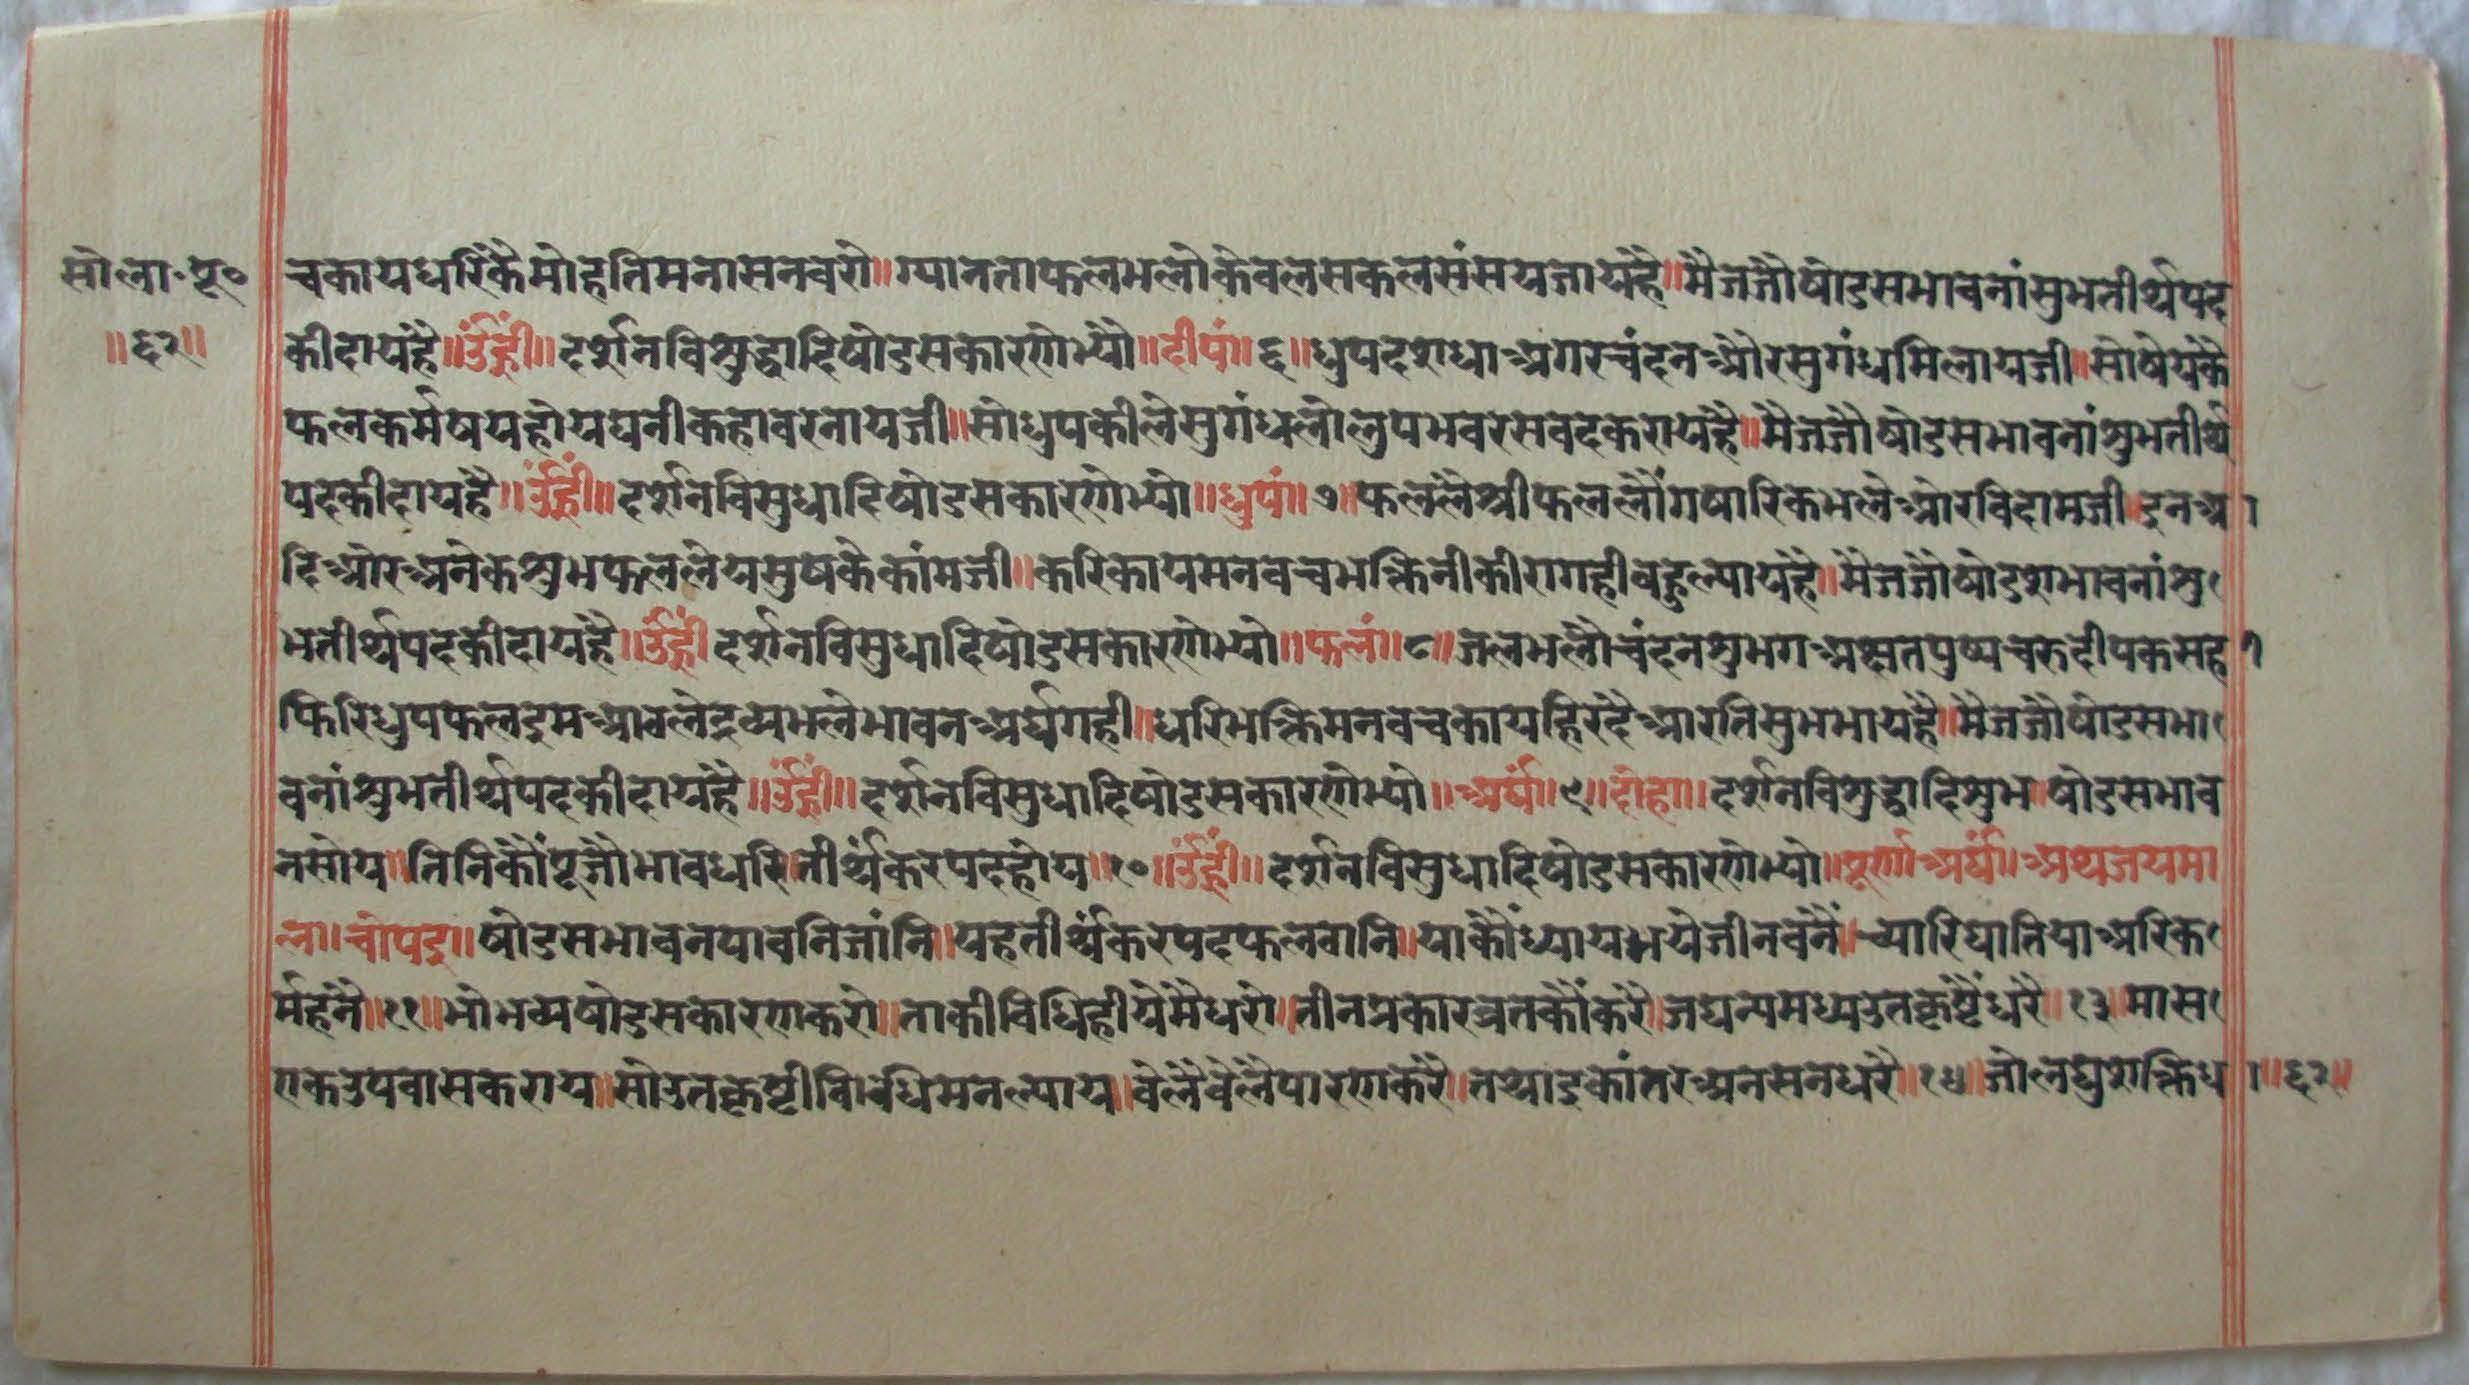 सोला॰पू॰
॥६२॥
चकायधरिकैमोहतिमनासनवरो॥ग्यानताफलभलोकेवलसकलसंसयजायहै॥मैजजौषोडसभावनांसुभतीर्थपद
कीदायहै॥उँह्रीं॥दर्शनविशुद्धादिषोडसकारणेभ्यो॥दीपं॥६॥धुपदशधाअगरचंदनऔरसुगंधमिलायजी॥सोषेयकै
फलकर्मषयहोयघनीकहावरनायजी॥सोधुपकीलेसुगंधलोलुपभवरसवदकरायहै॥मैजजौषोडसभावनांशुभतीर्थ
पदकीदायहै॥उँह्रीं॥दर्शनविसुधादिषोडसकारणेभ्यो॥धुपं॥७॥फललैश्रीफललौंगषारिकभलेओरविदामजी॥इनआ
दिओरअनेकशुभफललेयसुषकैकांमजी॥करिकायमनवचभक्तिनीकीरागहीवहुल्यायहै॥मैजजौषोडशभावनांसु
भतीर्थपदकीदायहै॥उँह्रीं॥दर्शनविसुधादिषोडसकारणेभ्यो॥फलं॥८॥जलभलौचंदनशुभगअक्षतपुष्पचरुदीपकसही
फिरिधुपफलइमआवलेद्रव्यभलेभावनअर्घगही॥धरिभक्तिमनवचकायहिरदैआरतिसुभभायहै॥मैजजौषोडसभा
वनांशुभतीर्थपदकीदायहै॥उँह्रीं॥दर्शनविसुधादिषोडसकारणेभ्यो॥अर्घं॥९॥दोहा॥दर्शनविशुद्धादिशुभ॥षोडसभाव
नसोय॥तिनिकौंपूजौभावधरि॥तीर्थंकरपदहोय॥१०॥उँह्रीं॥दर्शनविसुधादिषोडसकारणेभ्यो॥पूर्णाअर्घं॥अथजयमा
ला॥चोपइ॥षोडसभावनपावनिजांनि॥यहतीर्थंकरपदफलवानि॥याकौंध्यायभयेजीनवनैं॥च्यारिघातियाअरिक
र्महनै॥११॥भोभव्यषोडसकारणकरो॥ताकीविधिहीयेमैधरो॥तीनप्रकारव्रतकौंकरै॥जघन्यमध्यउतकृष्टैंधरै॥१३॥मास
एकउपवासकराय॥सोउतकृष्टीविधिमनल्याय॥वेलैवेलैपारणाकरै॥तथाइकांतरअनसनधरै॥१४॥जोलघुशक्तिधा॥६२॥